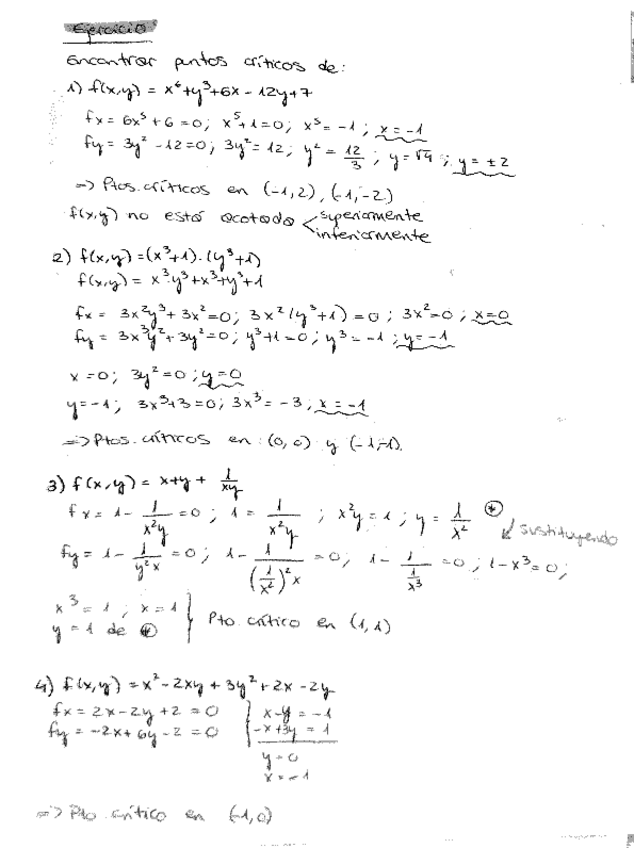 Ejercicio
Encontrar puntos críticos de:
1) f(x,y) = x⁶+y³+6x-12y+7
fx = 6x⁵+6=0; x⁵+1=0; x⁵=-1; x=-1
fy = 3y²-12=0; 3y²=12; y²=12/3; y=√4; y=±2
=> Ptos. críticos en (-1,2), (-1,-2)
f(x,y) no está acotada < superiormente
inferiormente
2) f(x,y)=(x³+1).(y³+1)
f(x,y) = x³y³+x³+y³+1
fx = 3x²y³+3x²=0; 3x²(y³+1)=0; 3x²=0; x=0
fy = 3x³y²+3y²=0; y³+1=0; y³=-1; y=-1
x=0; 3y²=0; y=0
y=-1; 3x³+3=0; 3x³=-3; x=-1
=> Ptos. críticos en: (0,0) y (-1,-1).
3) f(x,y) = x+y+ 1/xy
fx = 1- 1/x²y =0; 1= 1/x²y ; x²y=1; y= 1/x² (*)
sustituyendo
fy = 1- 1/y²x =0; 1- 1/((1/x²)²x) =0; 1- 1/(1/x³) =0; 1-x³=0;
x³=1; x=1
y=1 de (*) } Pto. crítico en (1,1)
4) f(x,y) = x²-2xy+3y²+2x-2y
fx = 2x-2y+2=0 } x-y=-1
fy = -2x+6y-2=0 -x+3y=1
y=0
x=-1
=> Pto crítico en (-1,0)